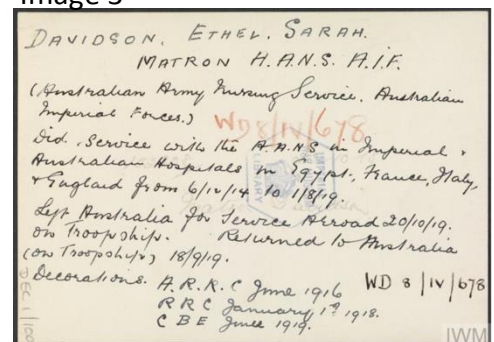 Image 3
DAVIDSON. ETHEL. SARAH.
MATRON A.A.N.S. A.I.F.
(Australian Army Nursing Service. Australian
Imperial Forces.)
WD8/IV/678
Did. Service with the A.A.N.S in Imperial +
Australian Hospitals in Egypt, France, Italy,
+ England from 6/12/14 to 1/8/19.
Left Australia for Service Abroad 20/10/19.
on Troopship. Returned to Australia
(on Troopship) 18/9/19.
Decorations. A.R.R.C June 1916
WD 8/IV/678
RRC January 1st 1918.
CBE June 1919.
DEC 1/100
LIBRARY
IWM